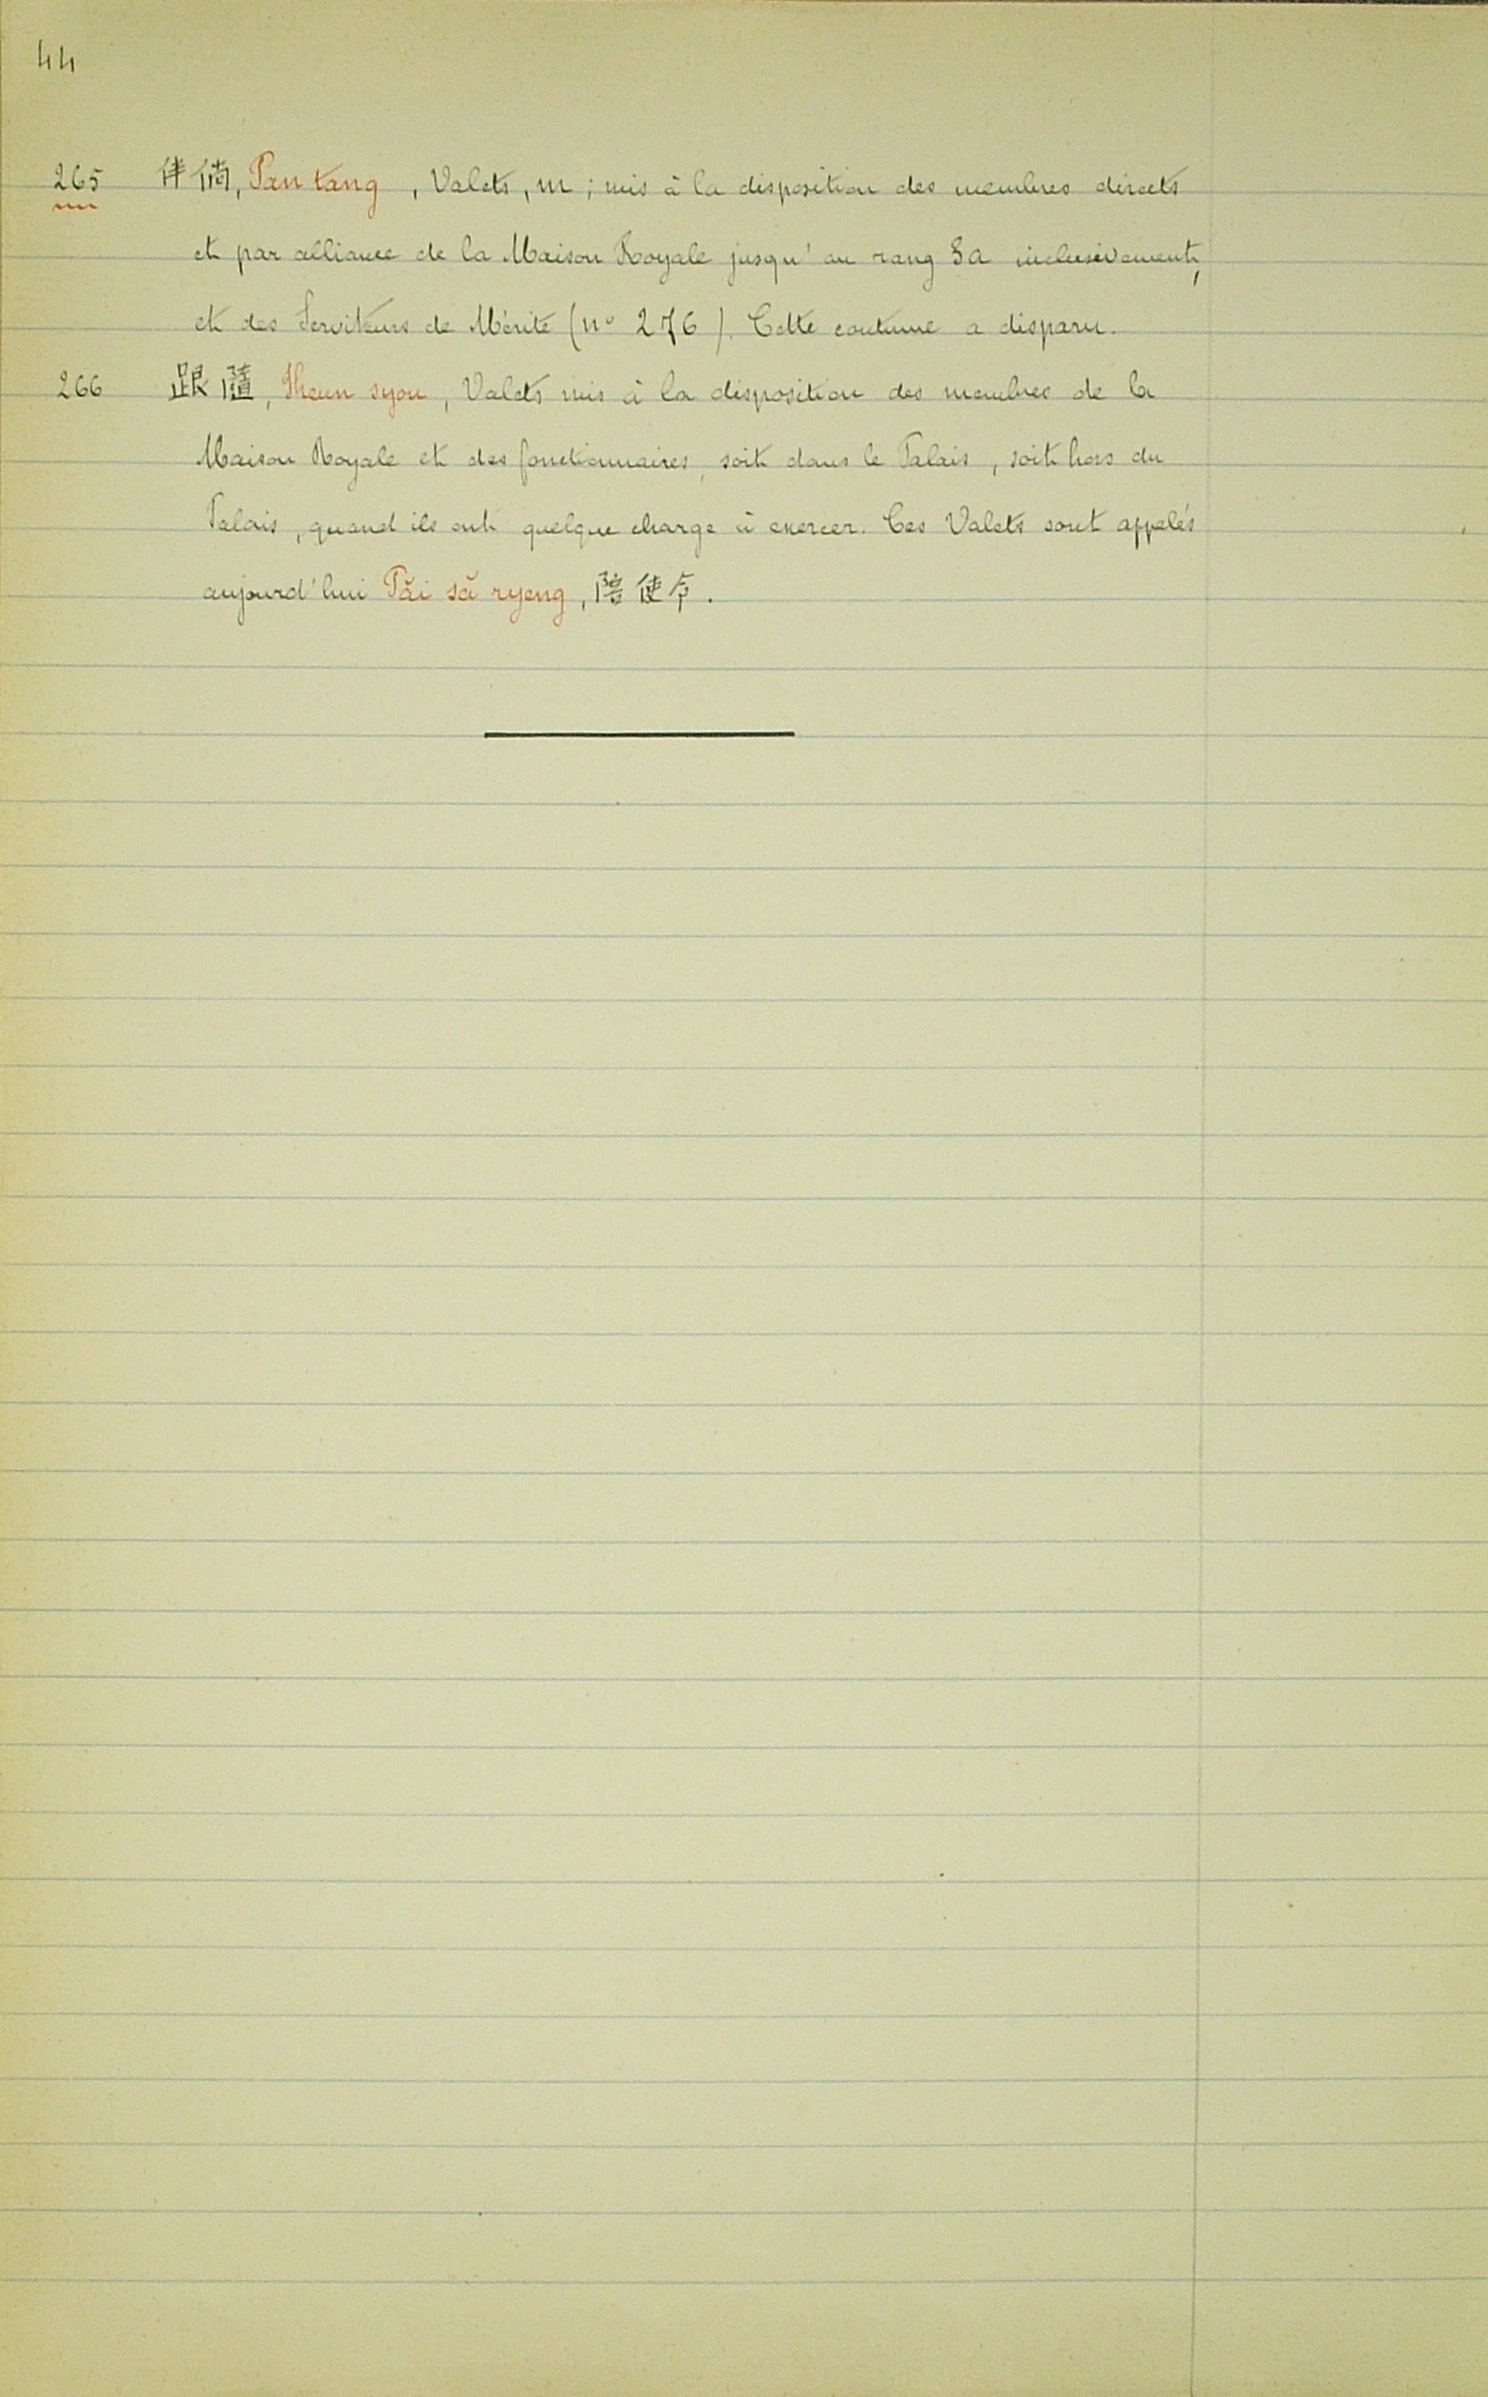 44
265 伴倘, Pan tang, Valets, m; mis à la disposition des membres directs
et par alliance de la Maison Royale jusqu'au rang 3a inclusivement,
et des Serviteurs de Mérite (nº 276). Cette coutume a disparu.
266 跟隨, Keun syou, Valets mis à la disposition des membres de la
Maison Royale et des fonctionnaires, soit dans le Palais, soit hors du
Palais, quand ils ont quelque charge à exercer. Ces Valets sont appelés
aujourd'hui Păi să ryeng, 陪使令.